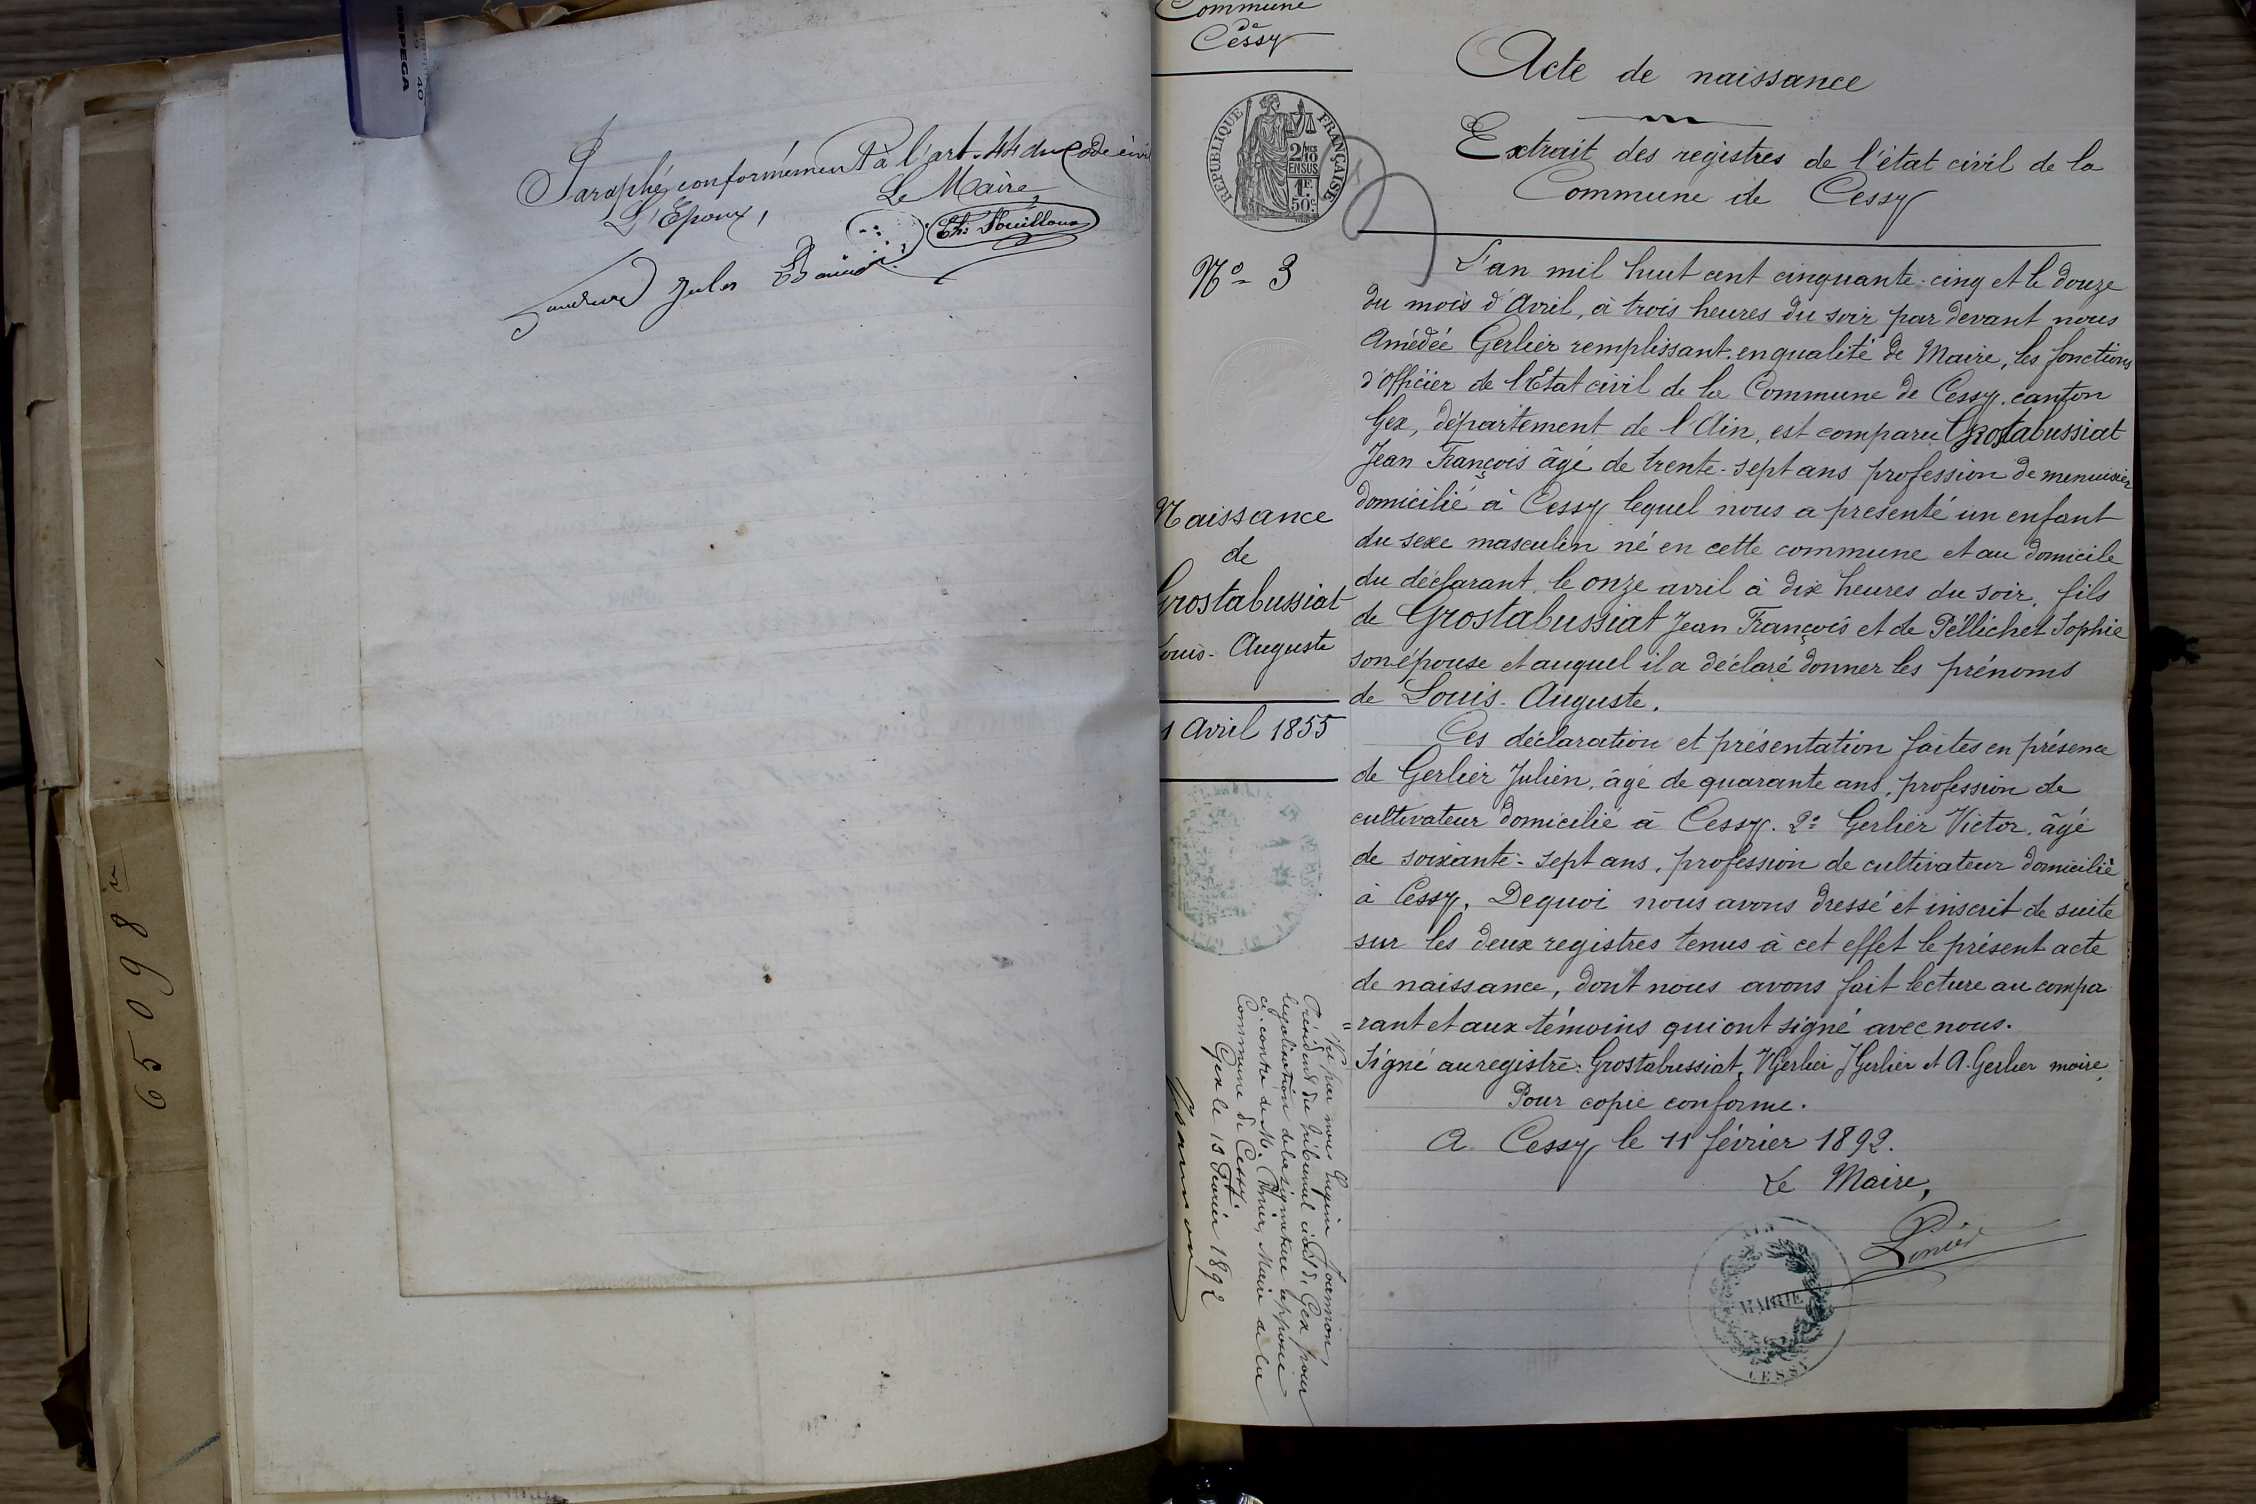 Paraphé conformément à l'art. 44 du Code civil
L'Epoux, Le Maire
Jules
Commune
de
Cessy
RÉPUBLIQUE FRANÇAISE
2/10 EN SUS
1F. 50c.
N° 3
Naissance
de
Grostabussiat
Louis-Auguste
Avril 1855
Acte de naissance
Extrait des registres de l'état civil de la
Commune de Cessy
L'an mil huit cent cinquante-cinq et le douze
du mois d'Avril, à trois heures du soir par devant nous
Amédée Gerlier remplissant en qualité de Maire, les fonctions
d'officier de l'Etat civil de la Commune de Cessy, canton
Gex, département de l'Ain, est comparu Grostabussiat
Jean François âgé de trente-sept ans profession de menuisier
domicilié à Cessy lequel nous a presenté un enfant
du sexe masculin né en cette commune et au domicile
du déclarant, le onze avril à dix heures du soir, fils
de Grostabussiat Jean François et de Pellichet Sophie
son épouse et auquel il a déclaré donner les prénoms
de Louis-Auguste.
Ces déclaration et présentation faites en présence
de Gerlier Julien, âgé de quarante ans, profession de
cultivateur domicilié à Cessy. 2° Gerlier Victor, âgé
de soixante-sept ans, profession de cultivateur domicilié
à Cessy. De quoi nous avons dressé et inscrit de suite
sur les deux registres tenus à cet effet le présent acte
de naissance, dont nous avons fait lecture au compa
=rant et aux témoins qui ont signé avec nous.
Signé au registre: Grostabussiat, V Gerlier J Gerlier et A. Gerlier maire
Pour copie conforme.
A Cessy le 11 février 1892.
Le Maire,
MAIRIE
CESSY
Vu par nous Joannon,
Président du tribunal civil de Gex pour
légalisation de la signature apposée
ci-contre de M. Maire de la
Commune de Cessy.
Gex le 13 Février 1892
Joannon
65098
40